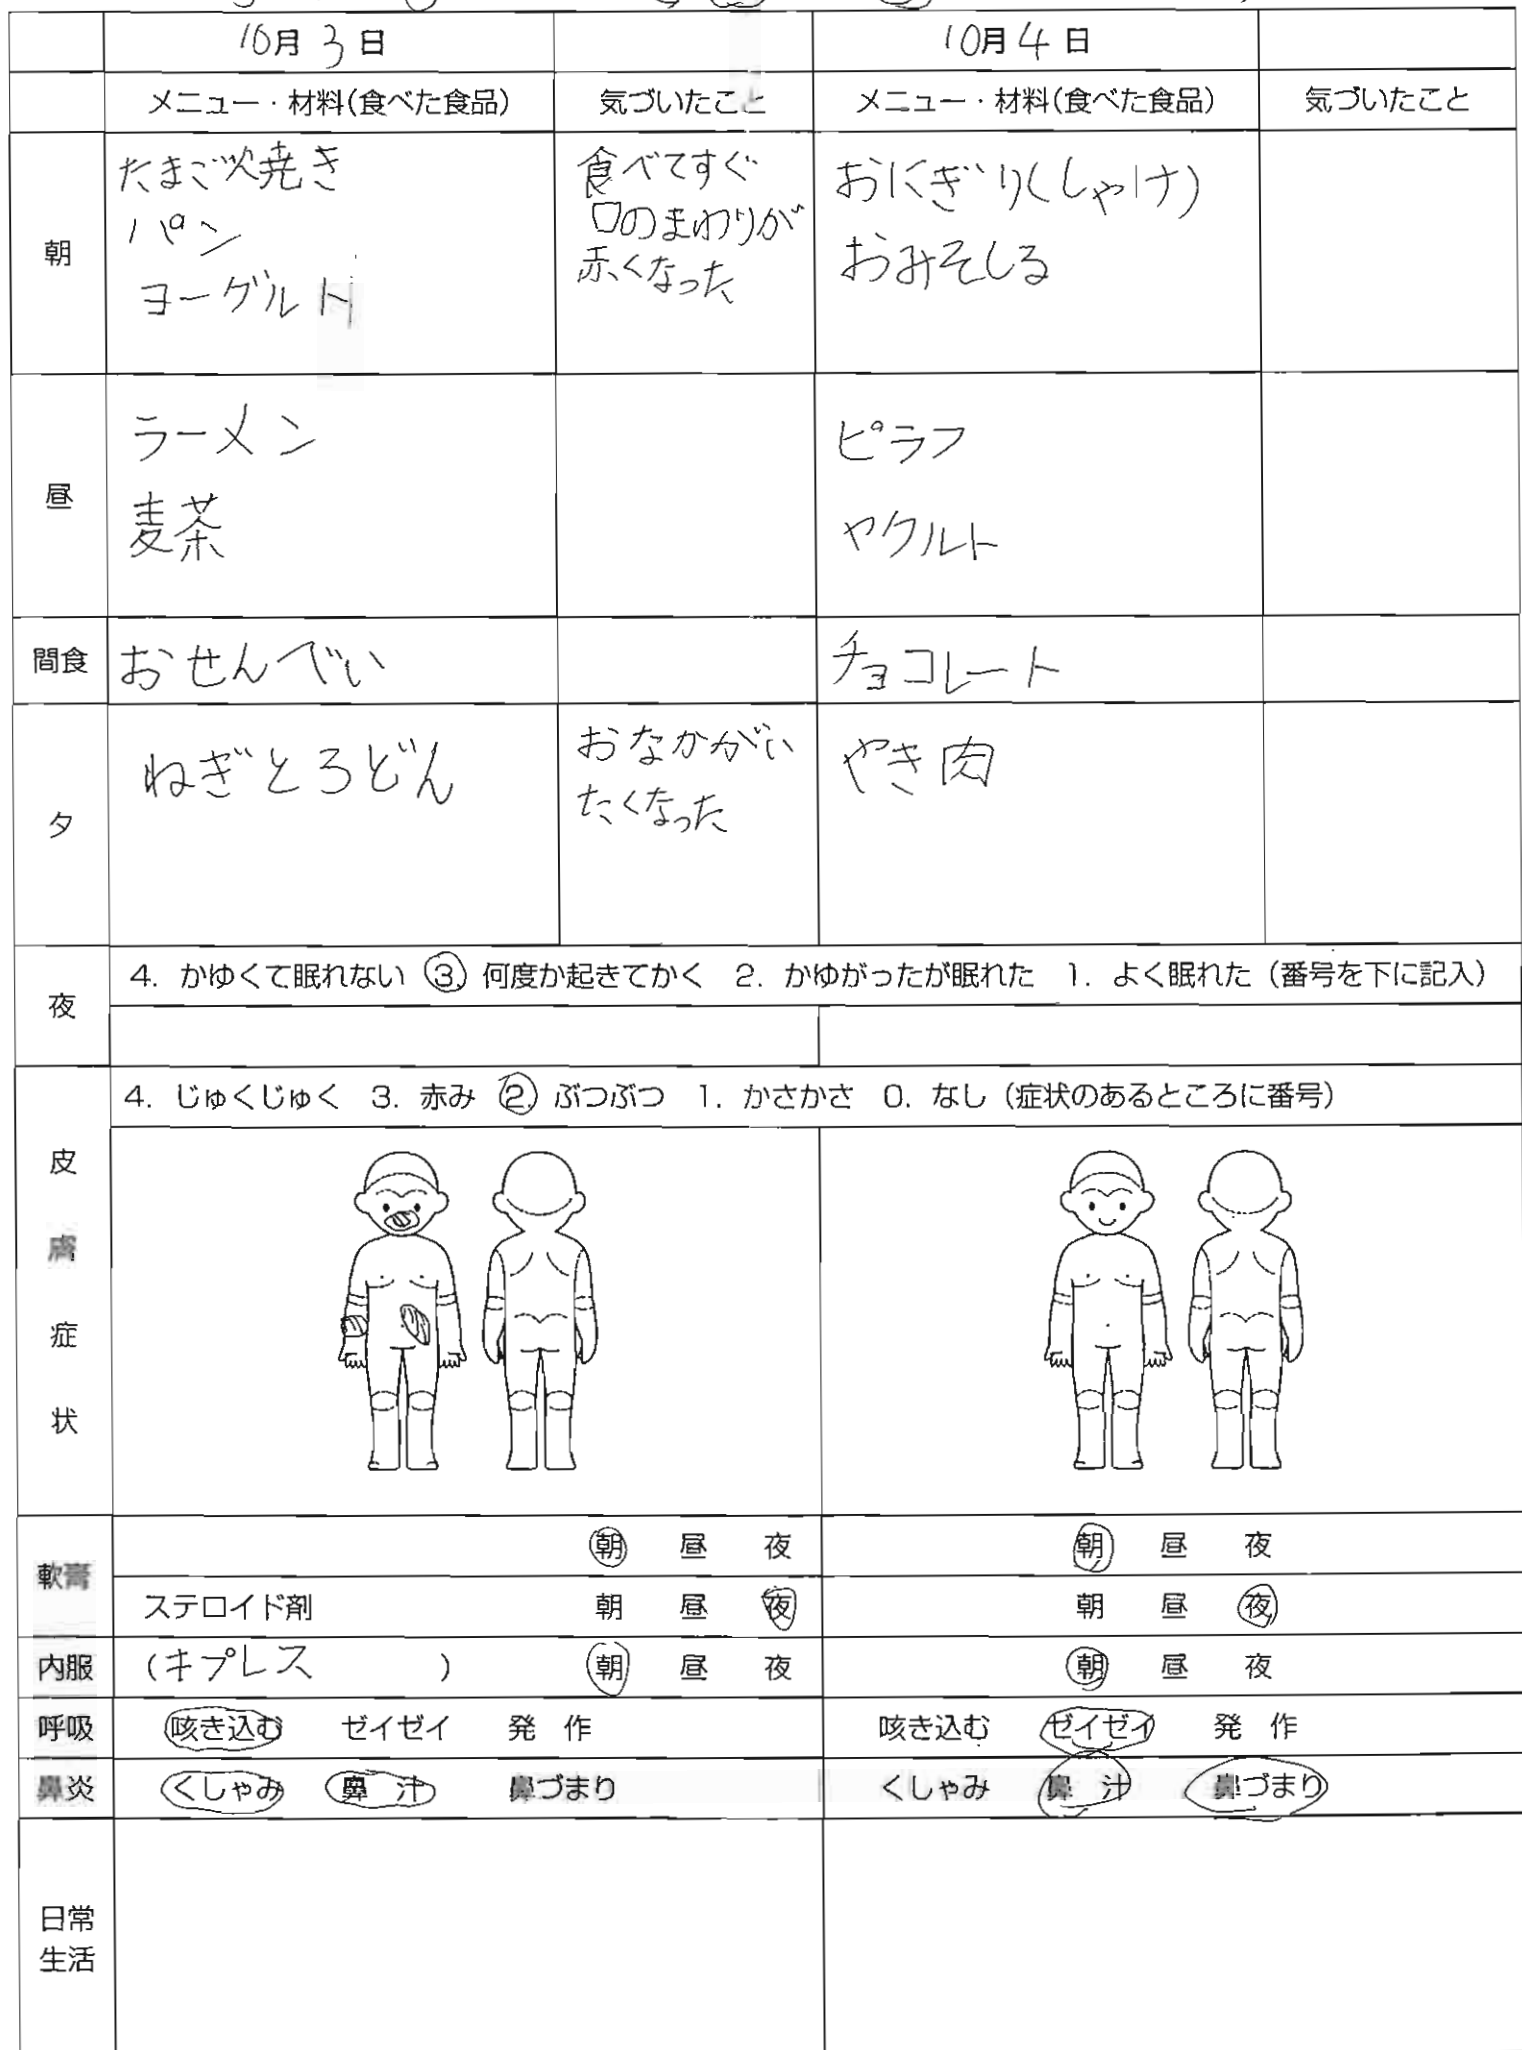 10月 3 日 10月 4 日
メニュー・材料(食べた食品) 気づいたこと メニュー・材料(食べた食品) 気づいたこと
朝
たまご焼き
パン
ヨーグルト
食べてすぐ
口のまわりが
赤くなった
おにぎり(しゃけ)
おみそしる
昼
ラーメン
麦茶
ピラフ
ヤクルト
間食 おせんべい チョコレート
夕
ねぎとろどん
おなかがい
たくなった
やき肉
夜
4. かゆくて眠れない 3. 何度か起きてかく 2. かゆがったが眠れた 1. よく眠れた(番号を下に記入)
皮膚症状
4. じゅくじゅく 3. 赤み 2. ぶつぶつ 1. かさかさ 0. なし(症状のあるところに番号)
軟膏
朝 昼 夜 朝 昼 夜
ステロイド剤 朝 昼 夜 朝 昼 夜
内服 (キプレス) 朝 昼 夜 朝 昼 夜
呼吸 咳き込む ゼイゼイ 発作 咳き込む ゼイゼイ 発作
鼻炎 くしゃみ 鼻汁 鼻づまり くしゃみ 鼻汁 鼻づまり
日常
生活